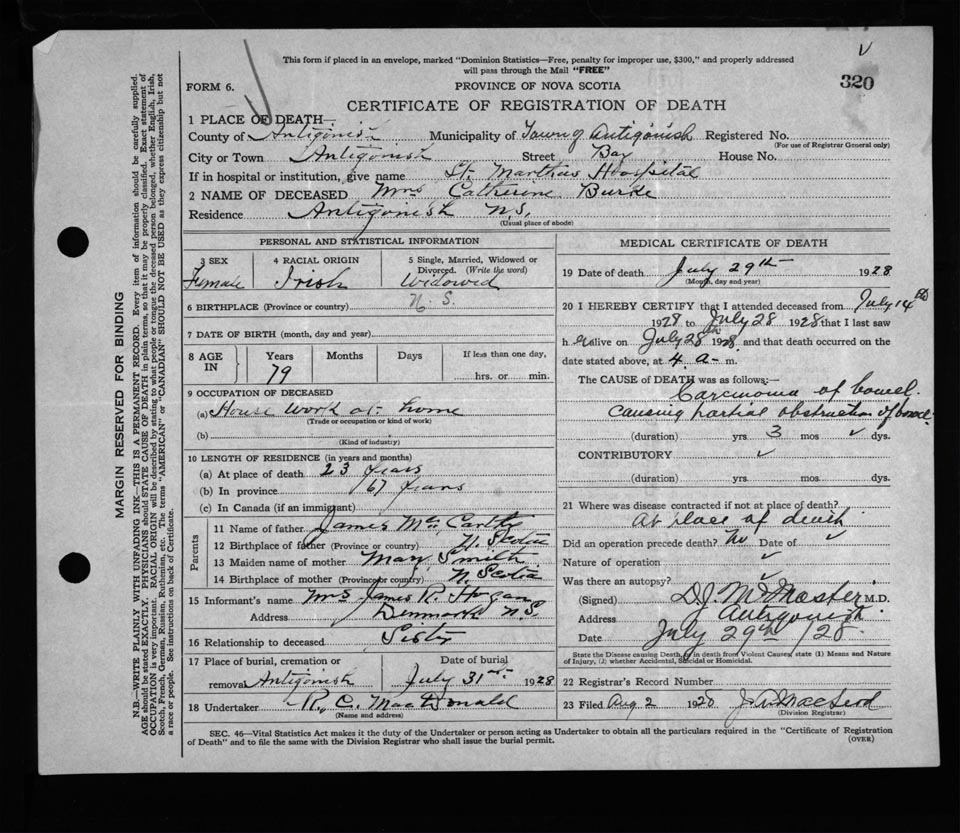 This form if placed in an envelope, marked "Dominion Statistics—Free, penalty for improper use, $300," and properly addressed
will pass through the Mail "FREE"
V
320
FORM 6.
PROVINCE OF NOVA SCOTIA
CERTIFICATE OF REGISTRATION OF DEATH
1 PLACE OF DEATH—
County of Antigonish Municipality of Town of Antigonish Registered No.
(For use of Registrar General only)
City or Town Antigonish Street Bay House No.
If in hospital or institution, give name St. Marthas Hospital
2 NAME OF DECEASED Mrs Catherine Burke
Residence Antigonish N.S.
(Usual place of abode)
PERSONAL AND STATISTICAL INFORMATION
3 SEX
Female
4 RACIAL ORIGIN
Irish
5 Single, Married, Widowed or
Divorced. (Write the word)
Widowed
6 BIRTHPLACE (Province or country) N. S.
7 DATE OF BIRTH (month, day and year)
8 AGE
IN
Years
79
Months
Days
If less than one day,
hrs. or min.
9 OCCUPATION OF DECEASED
(a) House work at home
(Trade or occupation or kind of work)
(b)
(Kind of industry)
10 LENGTH OF RESIDENCE (in years and months)
(a) At place of death 23 years
(b) In province 67 years
(c) In Canada (if an immigrant)
Parents
11 Name of father James McCarthy
12 Birthplace of father (Province or country) N. Scotia
13 Maiden name of mother Mary Smith
14 Birthplace of mother (Province or country) N. Scotia
15 Informant's name Mrs James R. Hogan
Address Denmark N.S.
16 Relationship to deceased Sister
17 Place of burial, cremation or
removal Antigonish
Date of burial
July 31st. 1928
18 Undertaker R. C. MacDonald
(Name and address)
MEDICAL CERTIFICATE OF DEATH
19 Date of death July 29th 1928
(Month, day and year)
20 I HEREBY CERTIFY that I attended deceased from July 14th
1928 to July 28 1928 that I last saw
h er alive on July 28th 1928, and that death occurred on the
date stated above, at 4 a- m.
The CAUSE of DEATH was as follows:—
Carcinoma of bowel.
causing partial obstruction of bowel.
(duration) yrs 3 mos ✓ dys.
CONTRIBUTORY ✓
(duration) yrs. mos. dys.
21 Where was disease contracted if not at place of death?
At place of death
Did an operation precede death? No Date of ✓
Nature of operation ✓
Was there an autopsy? ✓
(Signed) D.J. McMaster M.D.
Address Antigonish
Date July 29th /28
State the Disease causing Death, or in death from Violent Causes, state (1) Means and Nature
of Injury, (2) whether Accidental, Suicidal or Homicidal.
22 Registrar's Record Number
23 Filed Aug 2 1928 J. A. MacLeod
(Division Registrar)
SEC. 46—Vital Statistics Act makes it the duty of the Undertaker or person acting as Undertaker to obtain all the particulars required in the "Certificate of Registration
of Death" and to file the same with the Division Registrar who shall issue the burial permit.
(OVER)
MARGIN RESERVED FOR BINDING
N.B.—WRITE PLAINLY WITH UNFADING INK—THIS IS A PERMANENT RECORD. Every item of information should be carefully supplied.
AGE should be stated EXACTLY. PHYSICIANS should STATE CAUSE OF DEATH in plain terms, so that it may be properly classified. Exact statement of
OCCUPATION is very important. RACIAL ORIGIN will be described by stating to what people or tongue the deceased person belonged, whether English, Irish,
Scotch, French, German, Russian, Ruthenian, etc. The terms "AMERICAN" or "CANADIAN" SHOULD NOT BE USED as they express citizenship but not
a race or people. See instructions on back of Certificate.